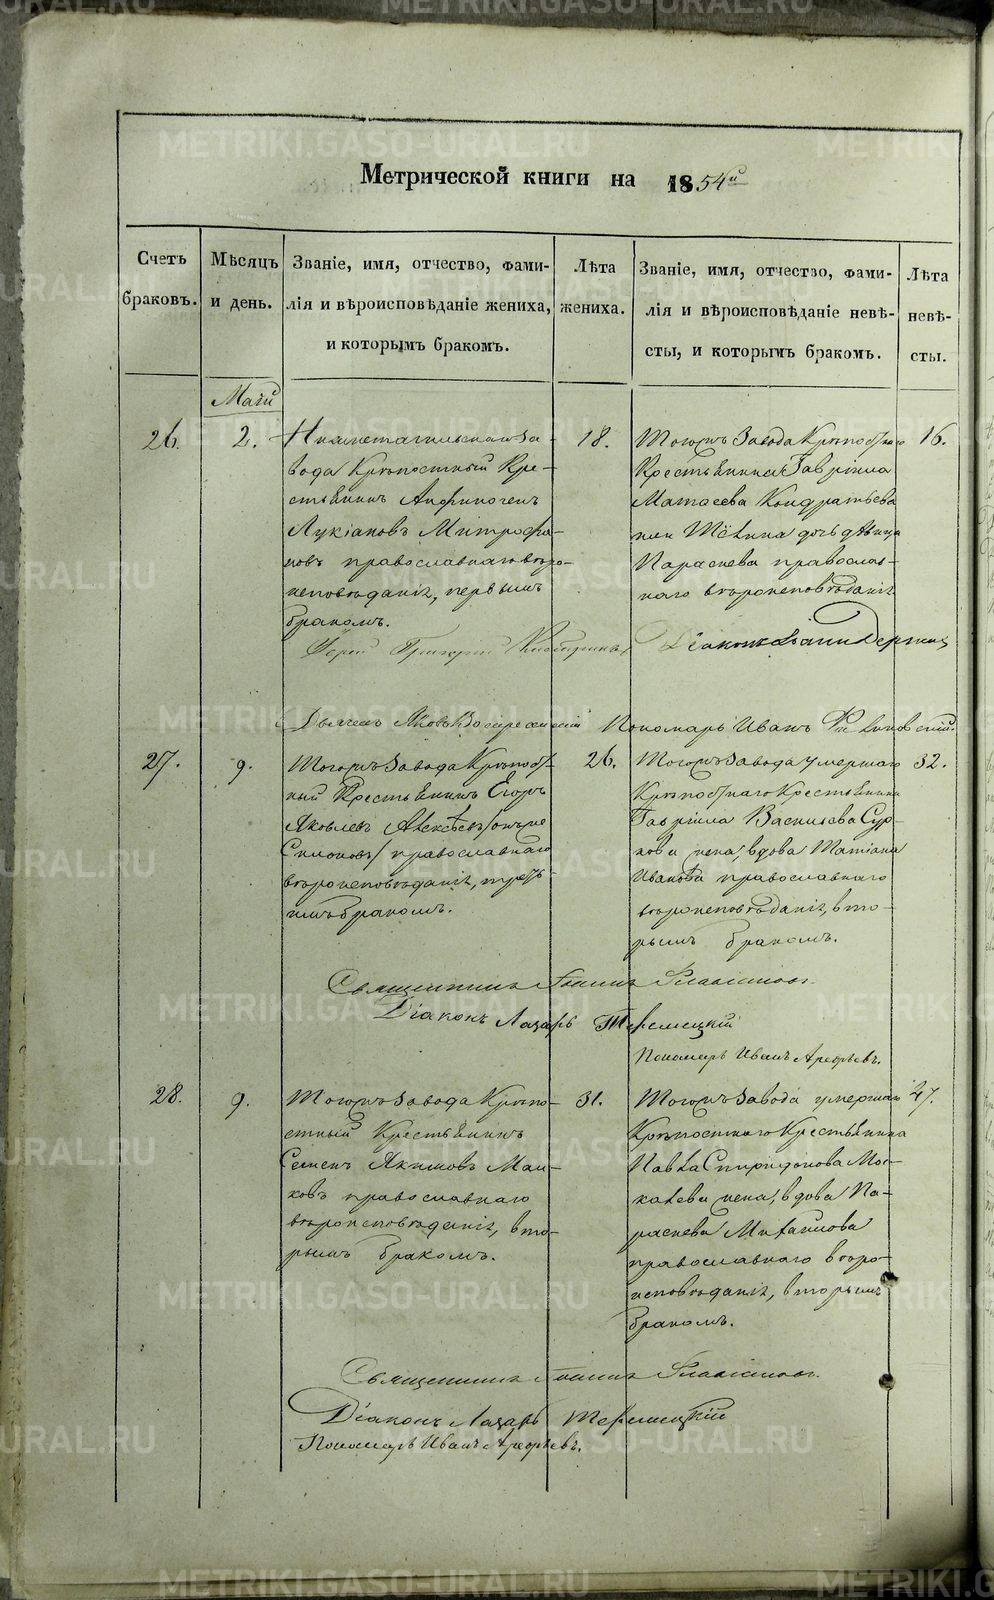 Метрической книги на 1854й
Счетъ браковъ.
Мѣсяцъ и день.
Званіе, имя, отчество, фами-
лія и вѣроисповѣданіе жениха,
и которымъ бракомъ.
Лѣта жениха.
Званіе, имя, отчество, фами-
лія и вѣроисповѣданіе невѣ-
сты, и которымъ бракомъ.
Лѣта невѣ-
сты.
Маій
26.
2.
Нижнетагильскаго за-
вода Крѣпостный Кре-
стьянинъ Анфиногенъ
Лукіановъ Митрофа-
новъ православнаго вѣро-
исповѣданія, первымъ
бракомъ.
18.
Тогожъ Завода Крѣпостнаго
Крестьянина Гавріила
Матѳеева Кондратьева
дочь дѣвица
Параскева православ-
наго вѣроисповѣданія
16.
Іерей Григорій
Діаконъ
Дьячекъ Яковъ Воскресенскій Пономарь Иванъ
27.
9.
Тогожъ Завода Крѣпост-
ный Крестьянинъ Егоръ
Яковлевъ Алексѣевъ /онъ же
православнаго
вѣроисповѣданія, треть-
имъ бракомъ.
26.
Тогожъ Завода умершаго
Крѣпостнаго Крестьянина
Гавріила Васильева Сур-
нова жена, вдова Татіана
Иванова православнаго
вѣроисповѣданія, вто-
рымъ бракомъ.
32.
Священникъ Іоаннъ
Діаконъ Лазарь
Пономарь Иванъ Арефьевъ.
28.
9.
Тогожъ Завода Крѣпо-
стный Крестьянинъ
Семенъ Якимовъ Мал-
ковъ православнаго
вѣроисповѣданія, вто-
рымъ бракомъ.
31.
Тогожъ Завода умершаго
Крѣпостнаго Крестьянина
Павла Спиридонова Мос-
калева жена, вдова Па-
раскева Михаилова
православнаго вѣро-
исповѣданія, вторымъ
бракомъ.
27.
Священникъ Іоаннъ
Діаконъ Лазарь
Пономарь Иванъ Арефьевъ.
METRIKI.GASO-URAL.RU